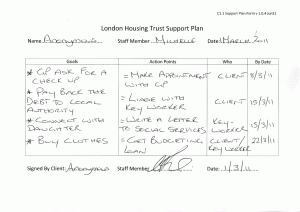 C1.1 Support Plan Form v 1.0.4 (unit)
London Housing Trust Support Plan
Name Anonymous Staff Member MICHELLE Date: 1 MARCH 2011
Goals Action Points Who By Date
* GP ASK FOR A CHECK UP = MAKE APPOINTMENT WITH GP CLIENT 8/3/11
* PAY BACK THE DEBT TO LOCAL AUTHORITY = LIAISE WITH KEY WORKER CLIENT 15/3/11
* CONNECT WITH DAUGHTER = WRITE A LETTER TO SOCIAL SERVICES KEY-WORKER 15/3/11
* BUY CLOTHES = GET BUDGETING LOAN CLIENT/KEY WORKER 22/3/11
Signed By Client: Anonymous Staff Member Date: 1/3/11